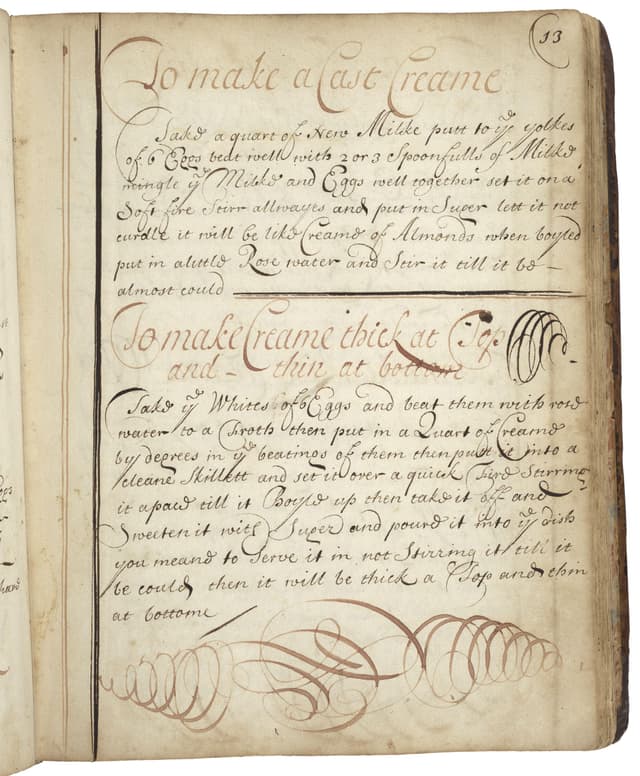 13
To make a Cast Creame
Take a quart of New Milke putt to yͤ yolkes
of 6 Eggs beat well with 2 or 3 Spoonfulls of Milke
mingle yͤ Milke and Eggs well together set it on a
Soft fire Stirr allwayes and put in Suger lett it not
curdle it will be like Creame of Almonds when boyled
put in a little Rose water and Stir it till it be –
almost could
To make Creame thick at Top
and – thin at bottome
Take yͤ Whites of 6 Eggs and beat them with rose
water to a Froth then put in a Quart of Creame
by degrees in yͤ beatings of them then putt it into a
cleane Skillett and set it over a quick Fire Stirring
it apace till it Boyle up then take it off and
Sweeten it with Suger and poure it into yͤ dish
you meane to Serve it in not Stirring it till it
be could then it will be thick a Top and thin
at bottome